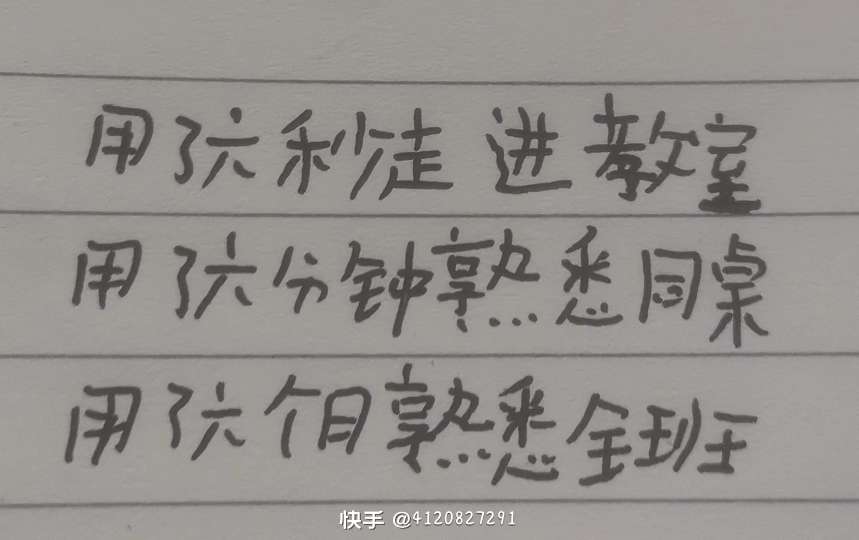 用了六秒走进教室
用了六分钟熟悉同桌
用了六个月熟悉全班
快手 @4120827291